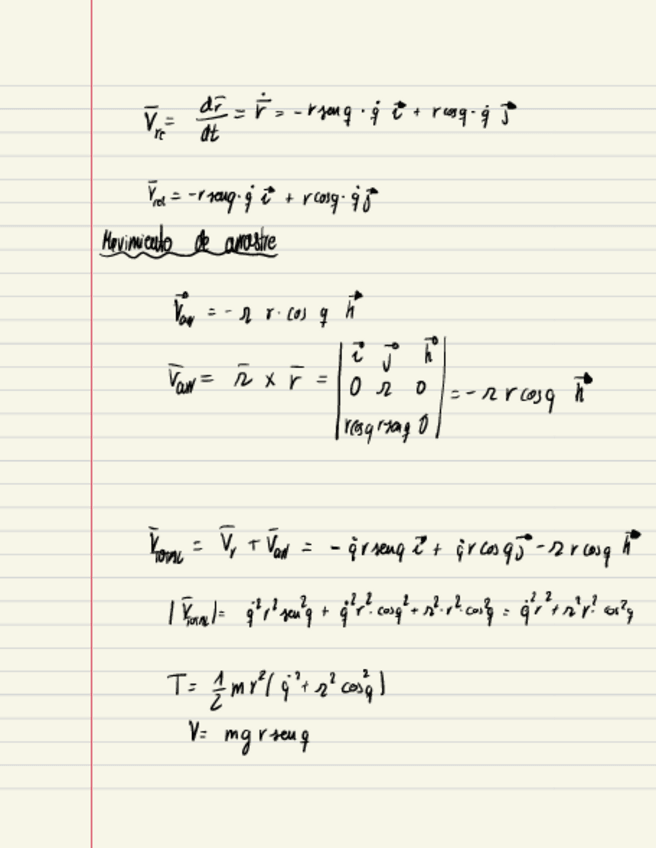 V̄re = dr̄/dt = ṙ̄ = -r sen q · q̇ i⃗ + r cos q · q̇ j⃗
V̄rel = -r sen q · q̇ i⃗ + r cos q · q̇ j⃗
Movimiento de arrastre
V⃗arr = - Ω r · cos q k⃗
V̄arr = Ω̄ x r̄ = | i⃗ j⃗ k⃗ | 0 Ω 0 | r cos q r sen q 0 | = - Ω r cos q k⃗
V̄TOTAL = V̄r + V̄arr = - q̇ r sen q i⃗ + q̇ r cos q j⃗ - Ω r cos q k⃗
|V̄TOTAL| = q̇² r² sen² q + q̇² r² · cos q² + Ω² · r² · cos² q = q̇² r² + Ω² r² · cos² q
T = 1/2 m r² ( q̇² + Ω² cos² q )
V = m g r sen q